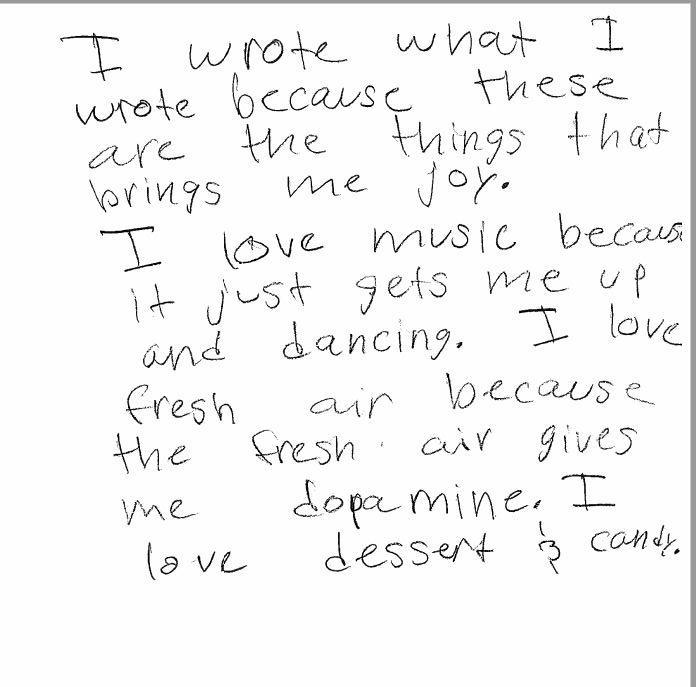 I wrote what I
wrote because these
are the things that
brings me joy.
I love music because
it just gets me up
and dancing. I love
fresh air because
the fresh air gives
me dopamine. I
love dessert & candy.